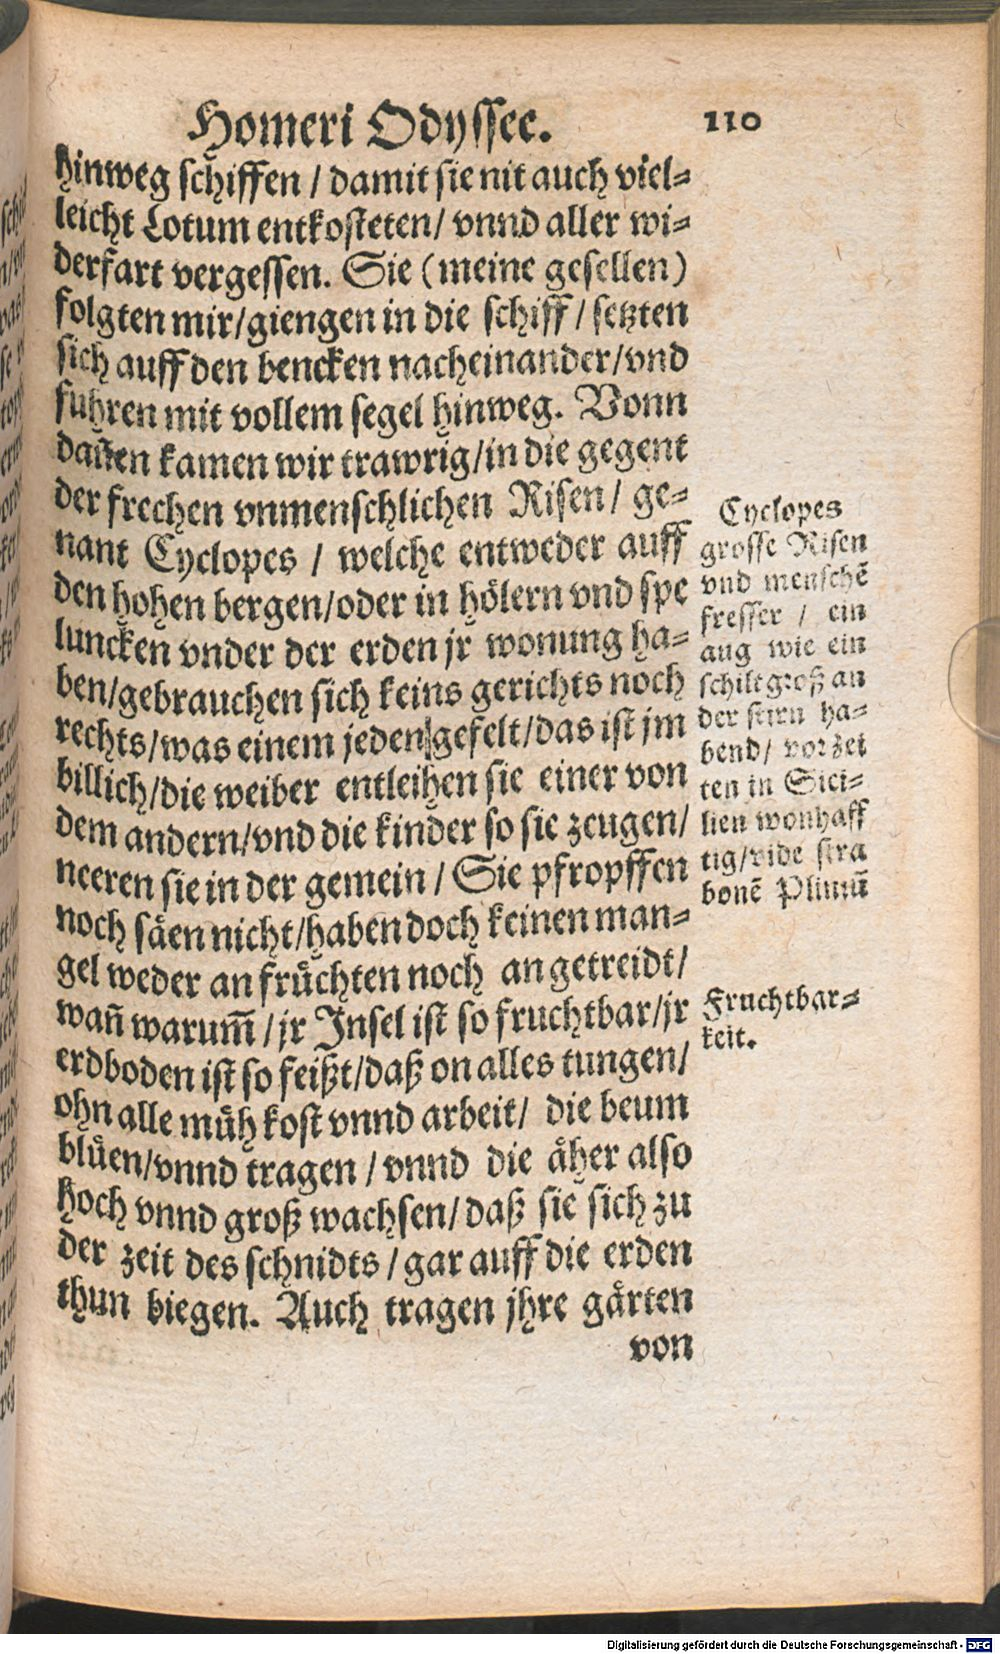 Homeri Odyssee. 110
hinweg schiffen / damit sie nit auch viel-
leicht Lotum entkosteten/ vnnd aller wi-
derfart vergessen. Sie (meine gesellen)
folgten mir/giengen in die schiff / setzten
sich auff den bencken nacheinander/vnd
fuhren mit vollem segel hinweg. Vonn
dañen kamen wir trawrig/in die gegent
der frechen vnmenschlichen Risen/ ge-
nant Cyclopes / welche entweder auff
den hohen bergen/oder in hölern vnd spe
luncken vnder der erden jr wonung ha-
ben/gebrauchen sich keins gerichts noch
rechts/was einem jeden gefelt/das ist jm
billich/die weiber entleihen sie einer von
dem andern/vnd die kinder so sie zeugen/
neeren sie in der gemein / Sie pfropffen
noch säen nicht/haben doch keinen man-
gel weder an früchten noch an getreidt/
wañ warum̃ /jr Insel ist so fruchtbar/jr
erdboden ist so feißt/daß on alles tungen/
ohn alle müh kost vnnd arbeit/ die beum
blüen/vnnd tragen / vnnd die äher also
hoch vnnd groß wachsen/daß sie sich zu
der zeit des schnidts / gar auff die erden
thun biegen. Auch tragen jhre gärten
von
Cyclopes
grosse Risen
vnd menschẽ
fresser / ein
aug wie ein
schilt groß an
der stirn ha-
bend/ vor zei
ten in Sici-
lien wonhaff
tig/vide stra
bonẽ Pliniũ
Fruchtbar-
keit.
Digitalisierung gefördert durch die Deutsche Forschungsgemeinschaft - DFG